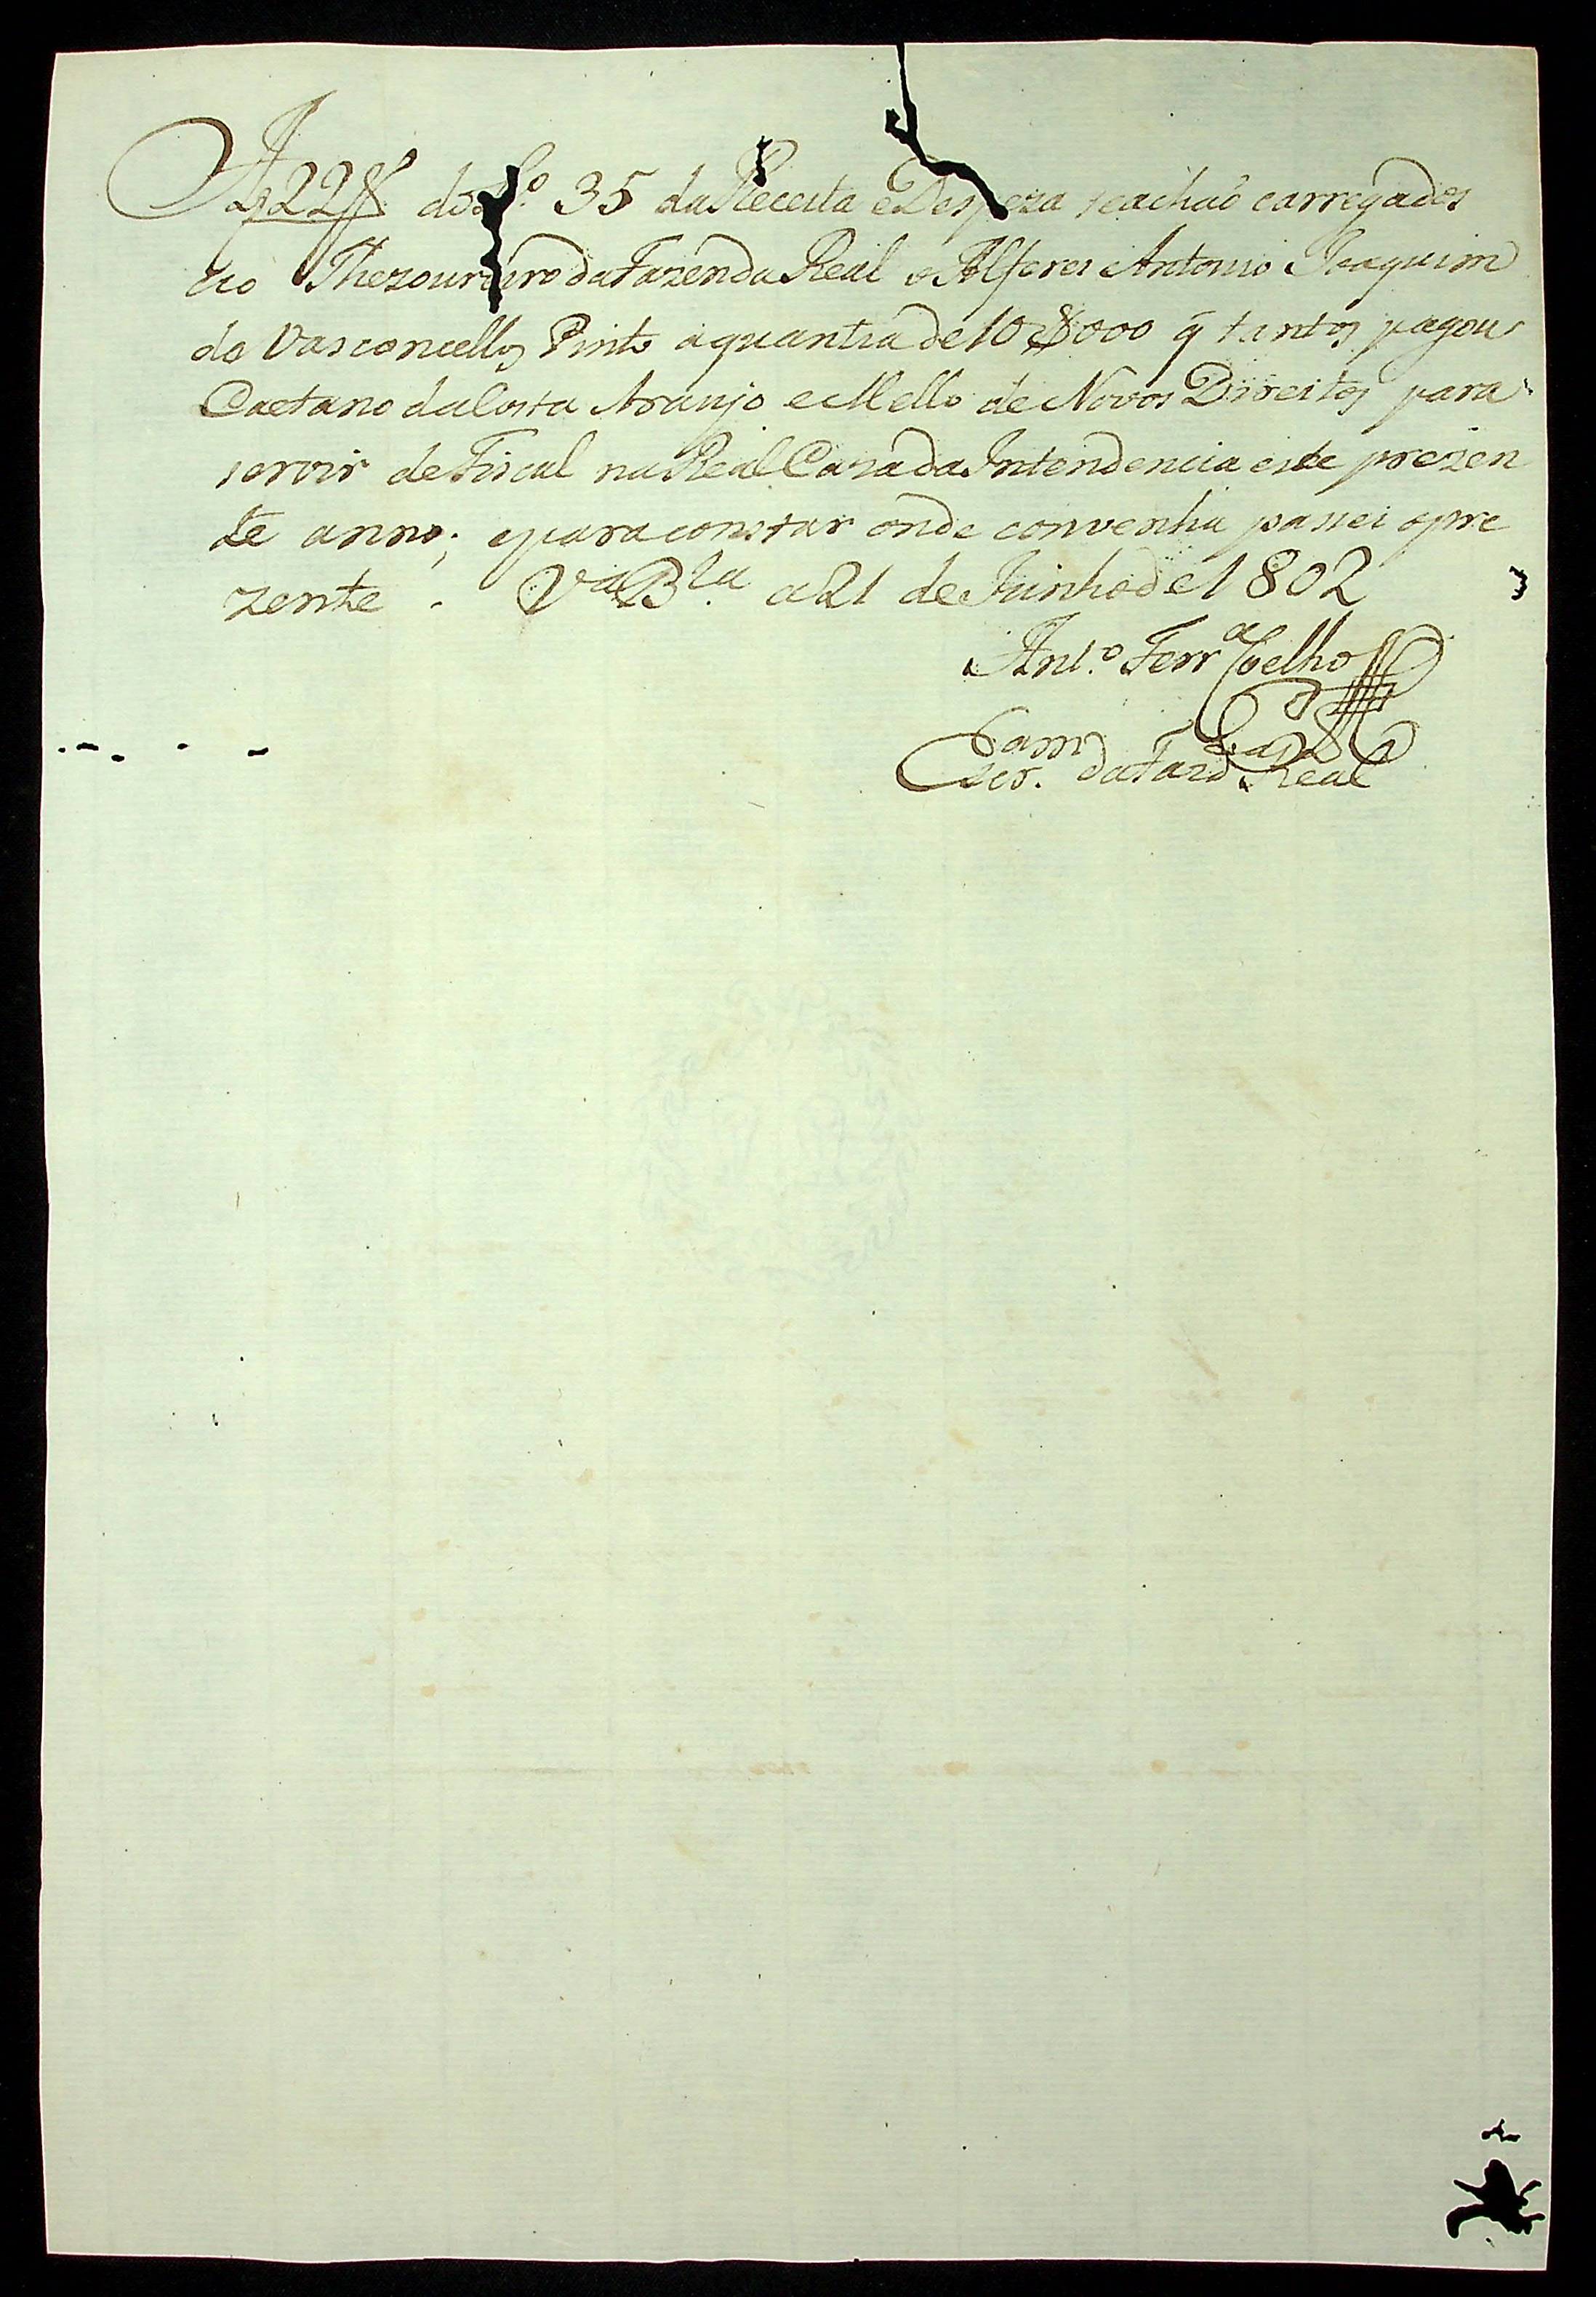 Af 22 V. do L.º 35 da Receita e Despeza se achaõ carregados
ao Thezoureiro da Fazenda Real o Alferes Antonio Joaquim
de Vasconcellos Pinto a quantia de 10$000 q̃ tantos pagou
Caetano da Costa Araujo e Mello de Novos Direitos para
servir de Fiscal na Real Caza da Intendencia este prezen
te anno; e para constar onde convenha passei o pre
zente. V.ª B.ª a 21 de Junho de 1802
Ant.º Ferr.ª Coelho
Cam
Escr. da Fazd.ª Real